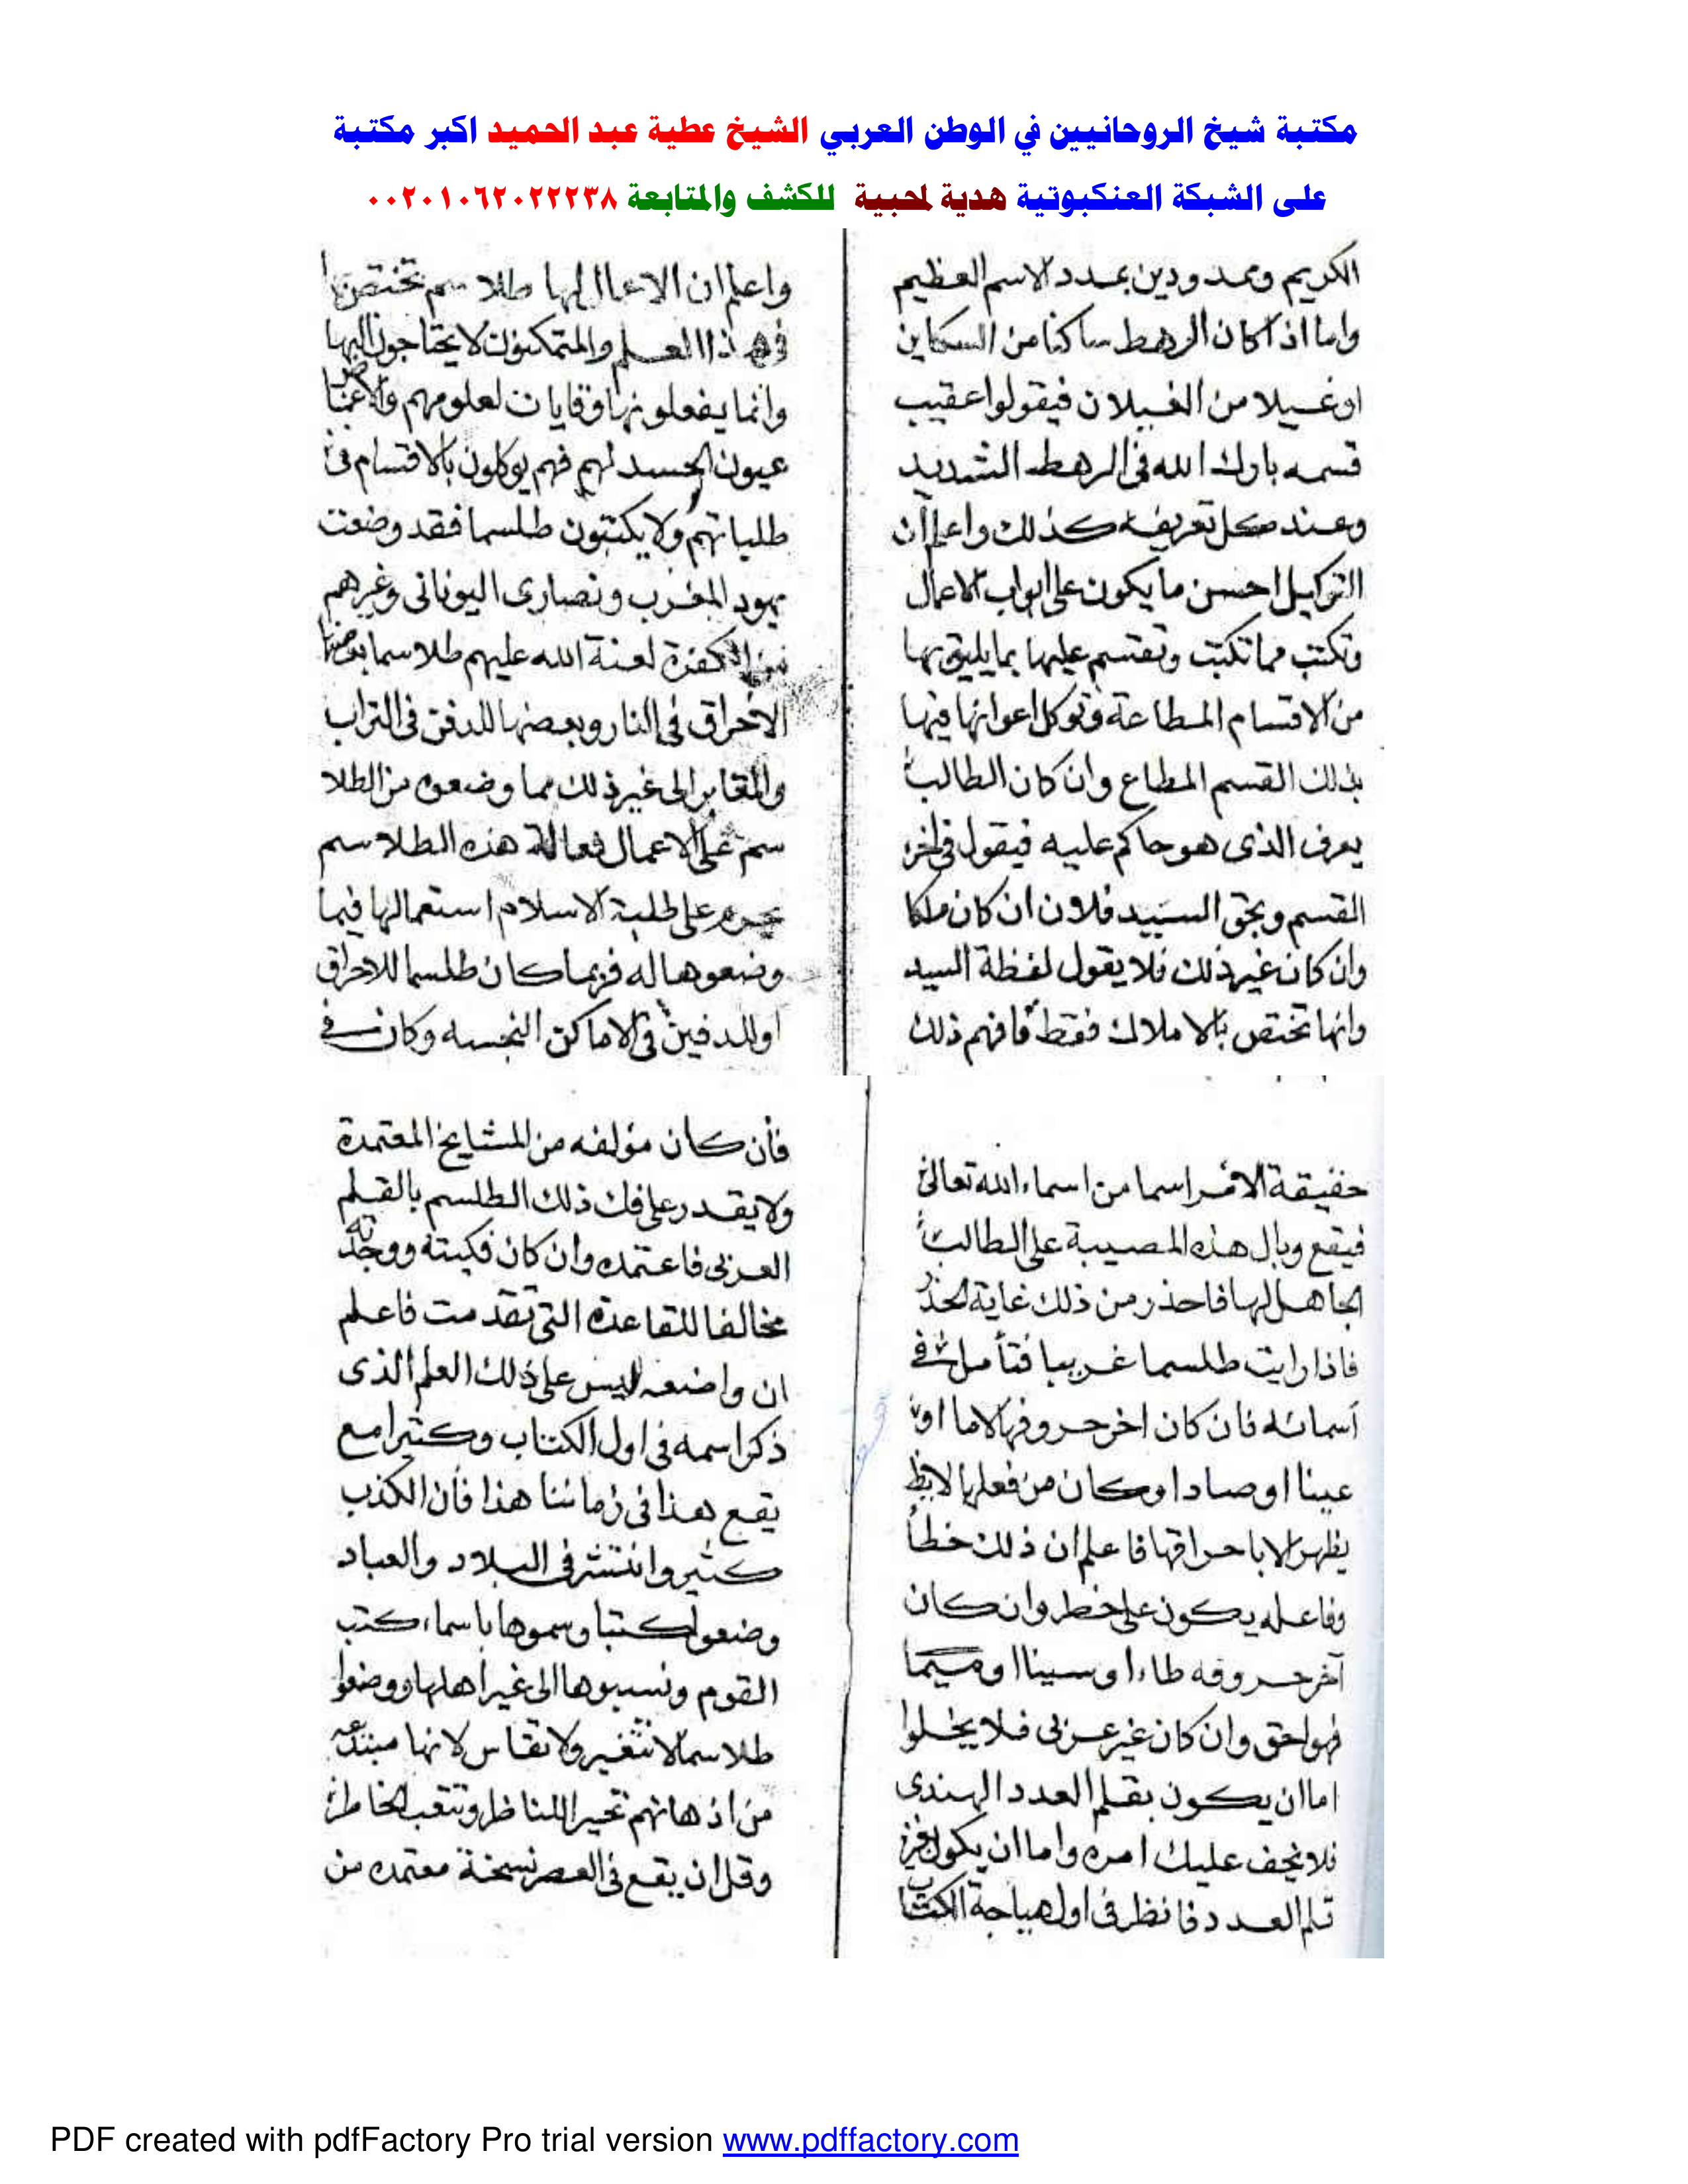 مكتبة شيخ الروحانيين في الوطن العربي الشيخ عطية عبد الحميد اكبر مكتبة
على الشبكة العنكبوتية هدية لمحبية للكشف والمتابعة ٠٠٢٠١٠٦٢٠٢٢٢٣٨
الكريم ومدودين بمدد الاسم العظيم
واما اذا كان الرهط ساكنا من السكاين
اوغيلا من الغيلان فيقولوا عقيب
قسمه بارك الله فى الرهط الشديد
وعند كل تعريفه كذلك واعلم ان
التوكيل احسن ما يكون على ابواب الاعمال
وتكتب مما تكتب وتقسم عليها بما يليق بها
من الاقسام المطاعة وتوكل اعوانها فيها
بذلك القسم المطاع وان كان الطالب
يعرف الذى هو حاكم عليه فيقول فى اخر
القسم وبحق السيد فلان ان كان ملكا
وان كان غير ذلك فلا يقول لفظة السيد
وانها تختص بالاملاك فقط فافهم ذلك
واعلم ان الاعمال لها طلا سم تختص بها
فى هذا العلم والمتمكنون لا يحتاجون اليها
وانما يفعلونها وقايات لعلومهم
عيون الحسد لهم فهم يوكلون بالاقسام فى
طلباتهم ولا يكتبون طلسما فقد وضعت
يهود المغرب ونصارى اليونانى وغيرهم
من الكفرة لعنة الله عليهم طلاسما
الاحراق فى النار وبعضها للدفن فى التراب
والمقابر الى غير ذلك مما وضعوه من الطلا
سم على الاعمال فعالة هذه الطلاسم
يحرم على طلبة الاسلام استعمالها فيما
وضعوها له فربما كان طلسما للاحراق
اوللدفين فى الاماكن النجسه وكان فى
حقيقة الامر اسما من اسماء الله تعالى
فيقع وبال هذه المصيبة على الطالب
الجاهل لها فاحذر من ذلك غاية الحذر
فاذا رايت طلسما غريبا فتأمل فى
أسمائه فان كان اخر حروفها لاما او
عينا او صادا وكان من فعلها لايظ
يظهر الا باحراقها فاعلم ان ذلك خطأ
وفاعله يكون على خطر وان كان
آخر حروفه طاءا وسينا اوميما
فهواحق وان كان غير عربى فلا يخلوا
اما ان يكون بقلم العدد الهندى
فلا يخف عليك امره واما ان يكون بغير
قلم العدد فانظر فى اول هباجة الكتاب
فأن كان مؤلفه من المشايخ المعتمدة
ولا يقدر على فك ذلك الطلسم بالقلم
العربى فاعتمده وان كان فكيته ووجدته
مخالفا للقاعدة التى تقدمت فاعلم
ان واضعه ليس على ذلك العلم الذى
ذكر اسمه فى اول الكتاب وكثيرا مع
يقع هذا فى زماننا هذا فأن الكذب
كثير وانتشر فى البلاد والعباد
وضعوا كتبا وسموها باسماء كتب
القوم ونسبوها الى غير اهلها ووضعوا
طلاسما لا تتغير ولا تقاس لانها مبتدعه
من اذهانهم تحير المناظر وتتعب الخاطر
وقل ان يقع فى العصر نسخة معتمده من
PDF created with pdfFactory Pro trial version www.pdffactory.com